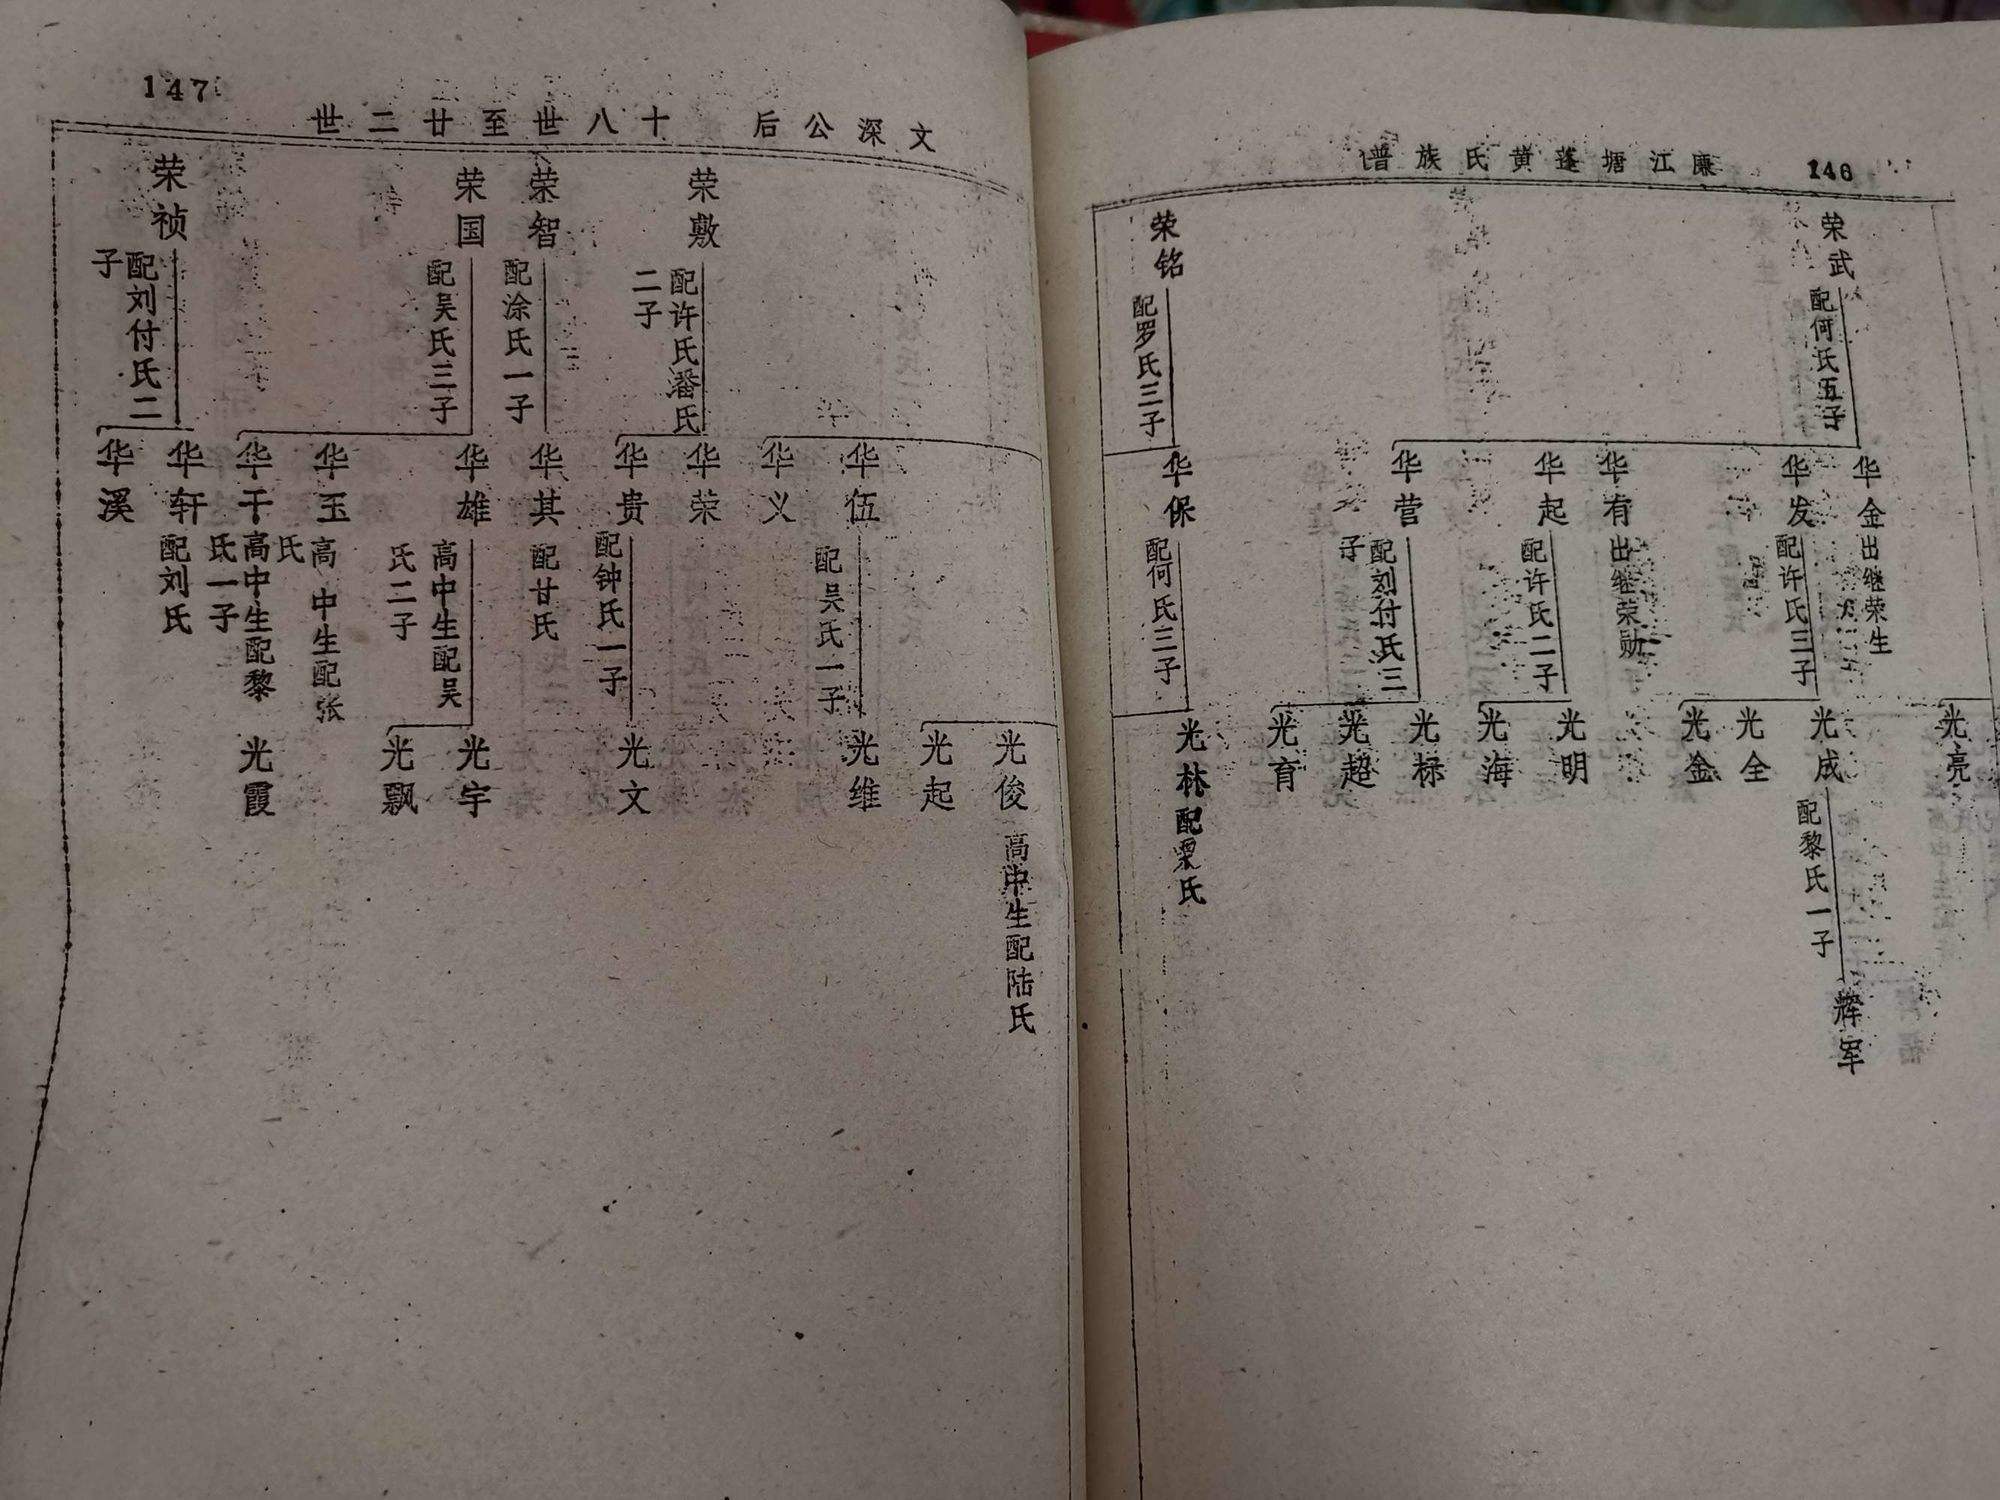 146
廉江塘蓬黄氏族谱
荣武
配何氏五子
荣铭
配罗氏三子
华金出继荣生
华发
配许氏三子
华有出继荣勋
华起
配许氏二子
华营
配刘付氏三
子
华保
配何氏三子
光亮
光成
配黎氏一子
光全
光金
光明
光海
光标
光超
光育
光林配梁氏
辉军
147
文深公后 十八世至廿二世
荣敷
配许氏潘氏
二子
荣智
配涂氏一子
荣国
配吴氏三子
荣祯
配刘付氏二
子
华伍
配吴氏一子
华义
华荣
华贵
配钟氏一子
华其
配甘氏
华雄
高中生配吴
氏二子
华玉
高中生配张
氏
华干
高中生配黎
氏一子
华轩
配刘氏
华溪
光俊
高中生配陆氏
光起
光维
光文
光宇
光飘
光霞